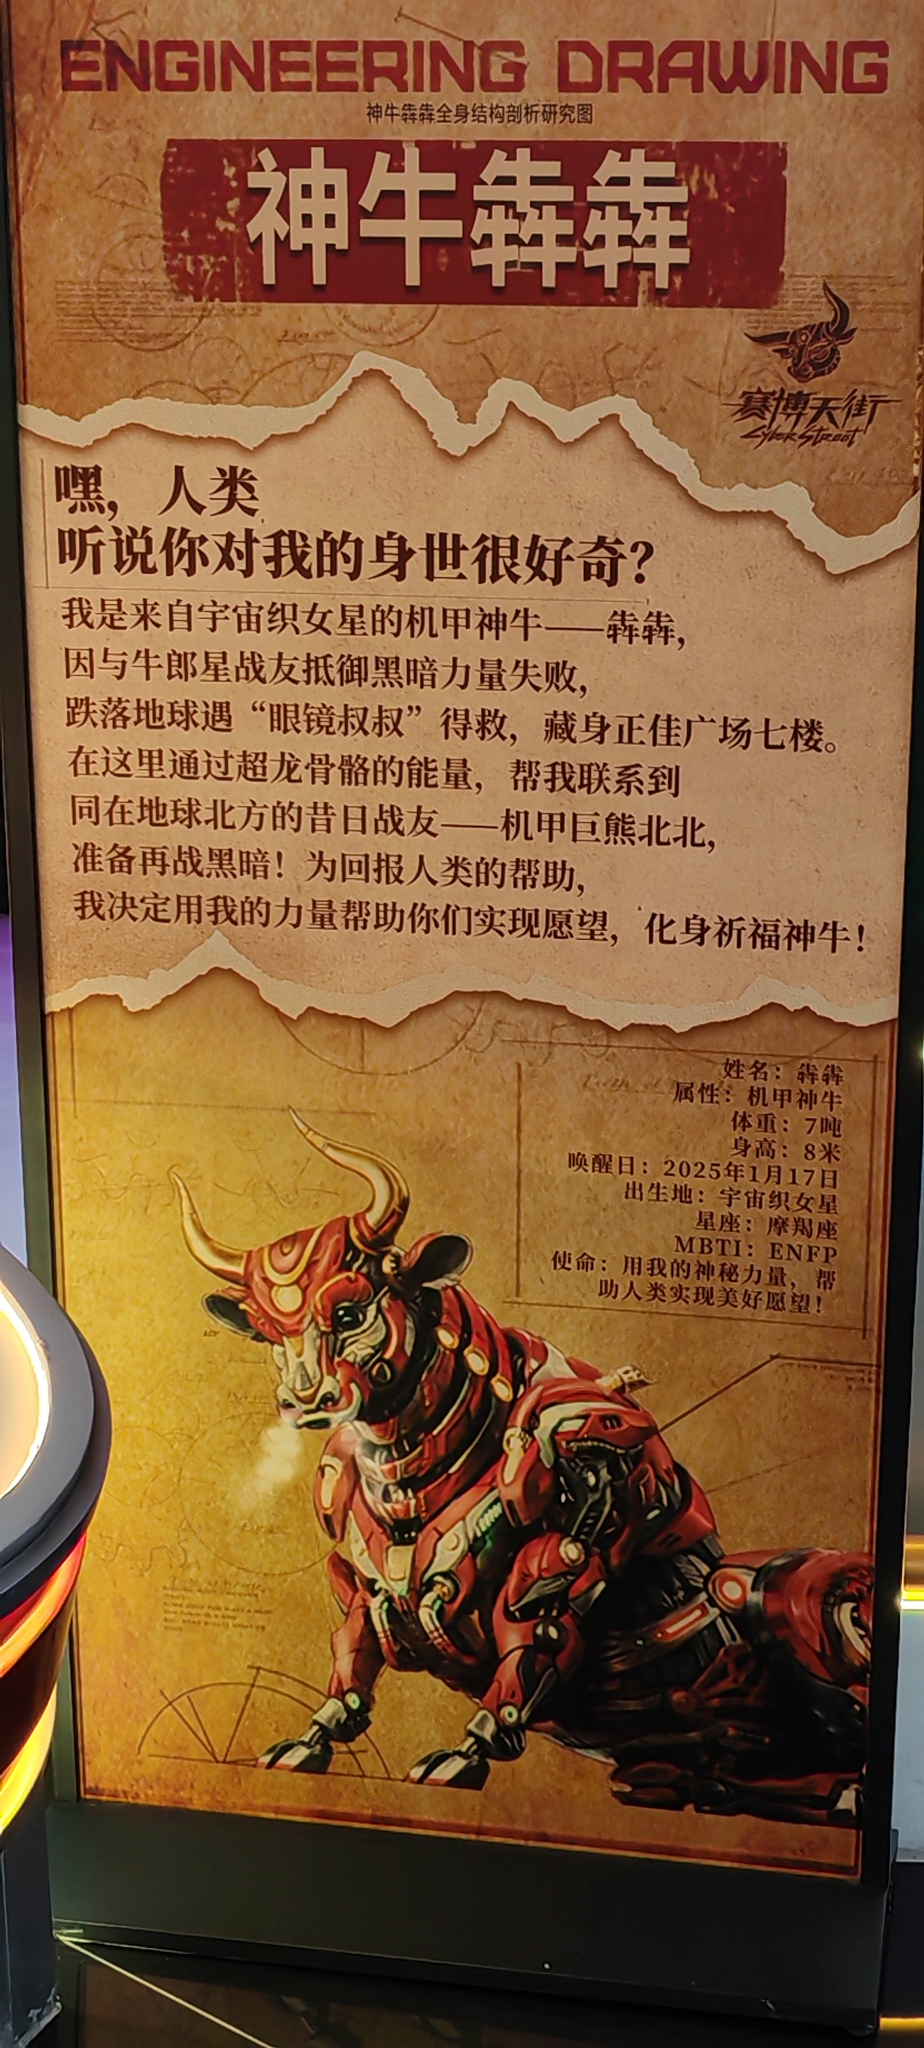 ENGINEERING DRAWING
神牛犇犇全身结构剖析研究图
神牛犇犇
赛博天街
Cyber Street
嘿，人类
听说你对我的身世很好奇？
我是来自宇宙织女星的机甲神牛——犇犇，
因与牛郎星战友抵御黑暗力量失败，
跌落地球遇“眼镜叔叔”得救，藏身正佳广场七楼。
在这里通过超龙骨骼的能量，帮我联系到
同在地球北方的昔日战友——机甲巨熊北北，
准备再战黑暗！为回报人类的帮助，
我决定用我的力量帮助你们实现愿望，化身祈福神牛！
姓名：犇犇
属性：机甲神牛
体重：7吨
身高：8米
唤醒日：2025年1月17日
出生地：宇宙织女星
星座：摩羯座
MBTI：ENFP
使命：用我的神秘力量，帮
助人类实现美好愿望！